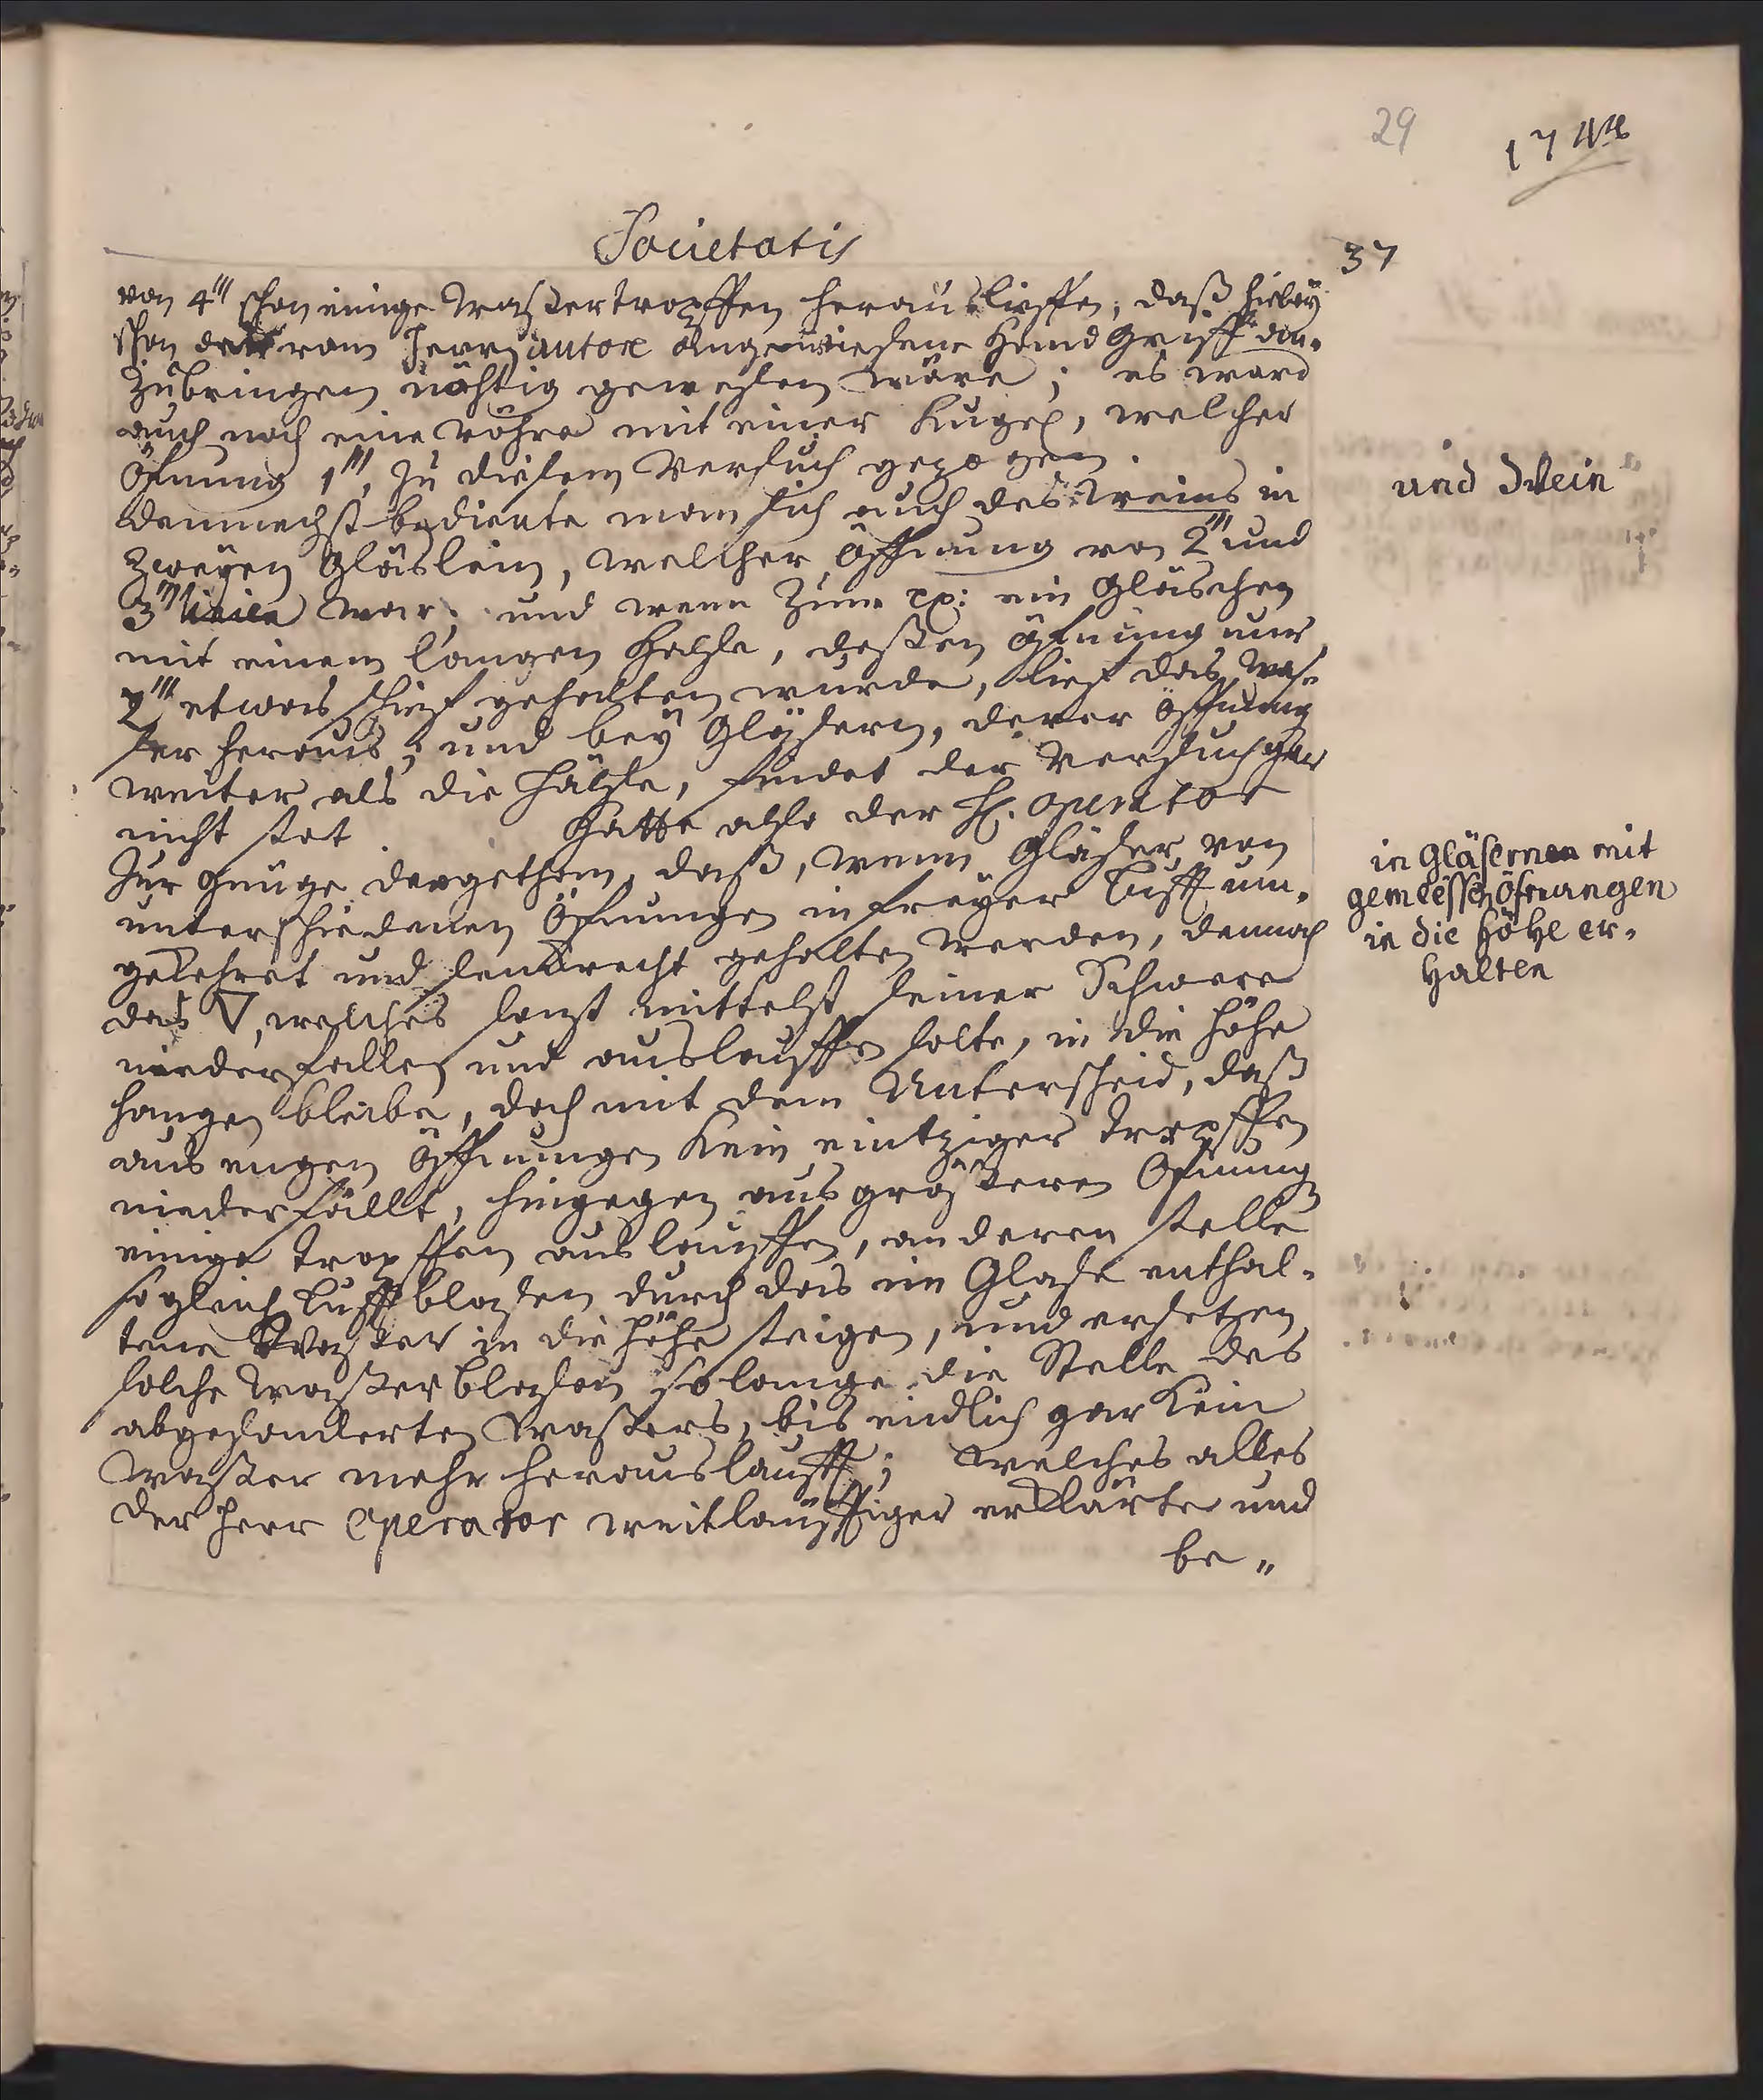 29
1744
Societatis
37
von 4''' schon einige Waßertropffen herauslieffen, daß hiebey
schon der vom Herrn autore angewiesene Hand Griff an-
zubringen nöhtig gewesen wäre; es ward
auch noch eine Röhre mit einer Kugel, welcher
Öfnung 1''', zu diesem Versuch gezogen.
Demnechst bediente man sich auch des Weins in
zweyen Gläslein, welcher Öffnung von 2''' und
3''' linien war; und wenn zum ex: ein Gläschen
mit einem langen Halse, deßen Öfnung nur
2''' etwas schief gehalten wurde, lief das Was-
ser heraus; und bey Gläsern, derer Öffnung
weiter als die Hälse, findet der Versuch gar
nicht stat. Hatte also der H. operator
zur Gnüge dargethan, daß, wenn Gläser von
unterschiedenen Öfnungen in freyer Lufft um-
gekehret und senkrecht gehalten werden, dennoch
das ▽, welches sonst mittelst seiner Schwere
niederfallen und auslauffen solte, in die Höhe
hangen bleibe, doch mit dem Unterscheid, daß
aus engen Öffnungen kein eintziger Tropffen
niederfällt, hingegen aus größeren Öfnung
einige Tropffen auslauffen, an deren Stelle
sogleich Lufftblasen durch das im Glase enthal-
tene Waßer in die Höhe steigen, und ersetzen
solche Waßerblasen so lange die Stelle des
abgesonderten Waßers, bis endlich gar kein
Waßer mehr herauslaufft; welches alles
der Herr Operator weitläuffiger erklärte und
be-
und Wein
in Gläsernen mit
gemeßen Öfnungen
in die Höhe er-
halten